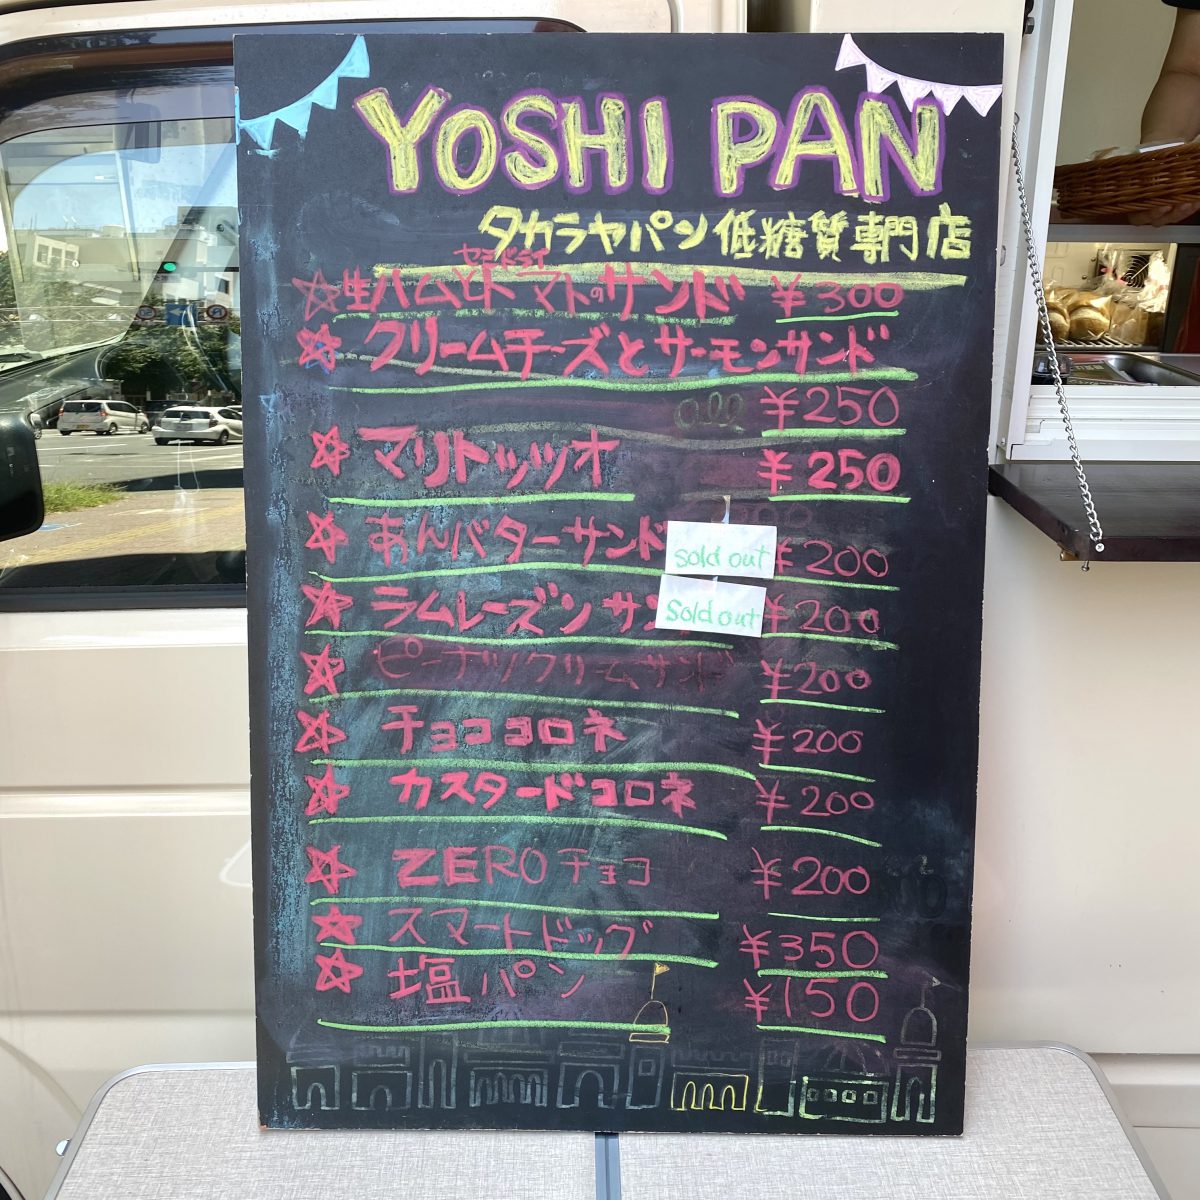 YOSHI PAN
タカラヤパン低糖質専門店
セミドライ
生ハムとトマトのサンド ¥300
クリームチーズとサーモンサンド
all ¥250
マリトッツオ ¥250
あんバターサンド sold out ¥200
ラムレーズンサン Sold out ¥200
ピーナツクリームサンド ¥200
チョココロネ ¥200
カスタードコロネ ¥200
ZEROチョコ ¥200
スマートドッグ ¥350
塩パン ¥150